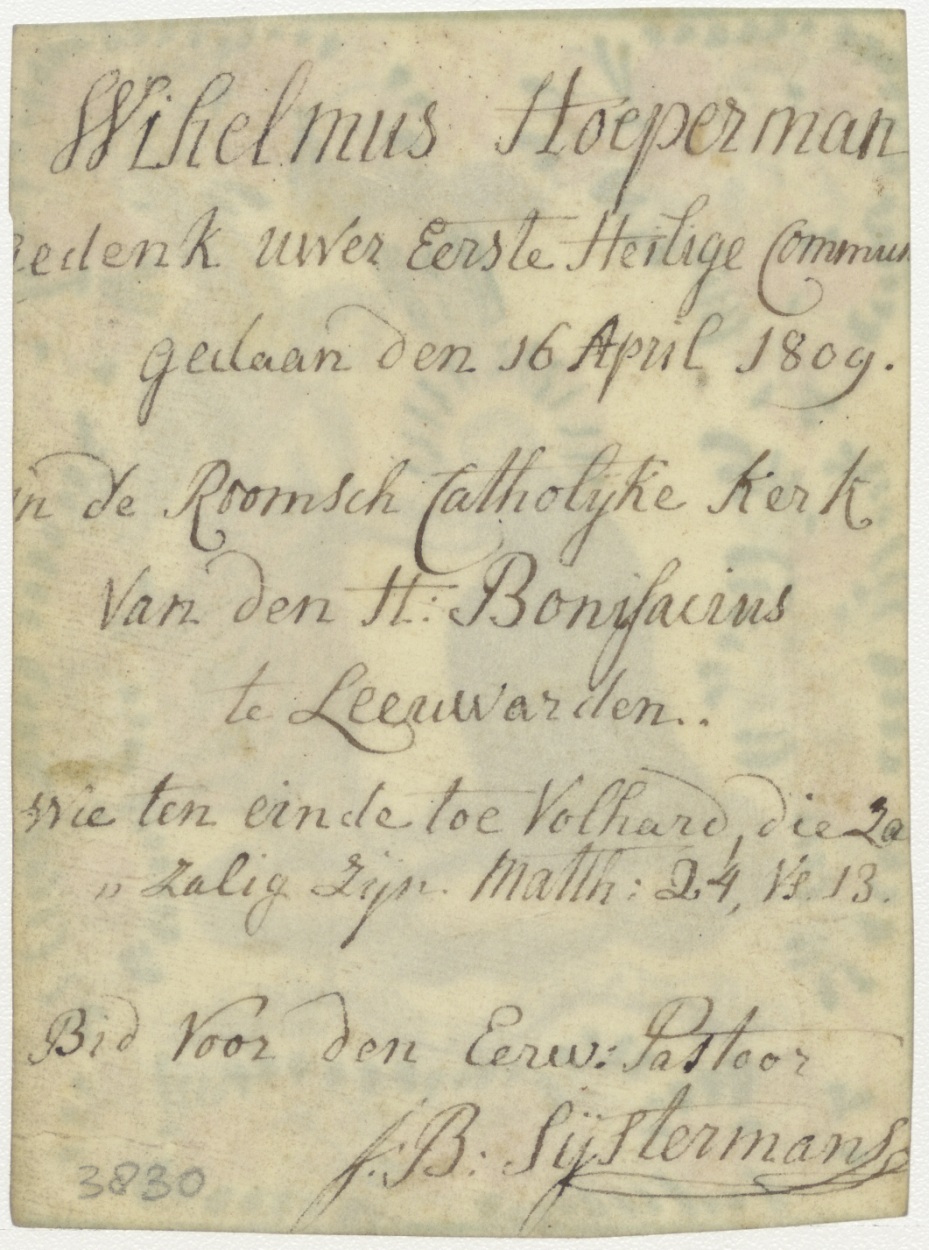 Wihelmus Hoeperman
Gedenk uwer Eerste Heilige Commun
gedaan den 16 April 1809.
in de Roomsch Catholijke Kerk
Van den H: Bonifacius
te Leeuwarden..
Wie ten einde toe Volhard, die Za
„ Zalig Zijn. Matth: 24, Vs. 13.
Bid Voor den Eerw: Pastoor
J: B: Sijstermans
3830